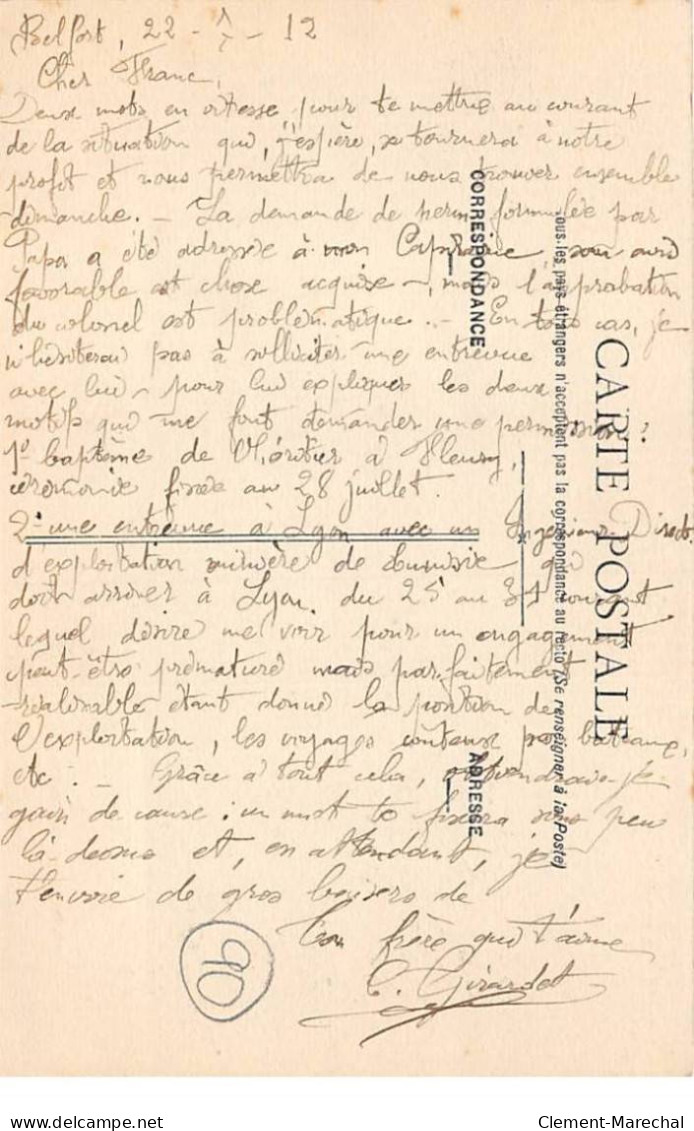 Belfort, 22 - - 12
Cher Franc,
Deux mots en vitesse pour te mettre au courant
de la situation qui, j'espère, se tournera à notre
profit et nous permettra de nous trouver ensemble
dimanche. - La demande de perm formulée par
Papa a été adressée à mon Capitaine, son avis
favorable est chose acquise -, mais l'approbation
du colonel est problématique. - En tous cas, je
n'hésiterai pas à solliciter une entrevue
avec lui - pour lui expliquer les deux
motifs qui me font demander une permission :
1º baptême de à Fleury,
cérémonie fixée au 28 juillet.
2- une entrevue à Lyon avec un Ingénieur Direct.
d'exploitation minière de Tunisie qui
doit arriver à Lyon du 25 au 31 courant
lequel désire me voir pour un engagement
peut-être prématuré mais parfaitement
réalisable étant donné la position de
l'exploitation, les voyages coûteux par bateaux,
etc. - Grâce à tout cela, obtiendrai-je
gain de cause : un mot te fixera sous peu
là-dessus et, en attendant, je
t'envoie de gros baisers de
Ton frère qui t'aime
C. Girardet
90
CARTE POSTALE
Tous les pays étrangers n'acceptent pas la correspondance au recto (Se renseigner à la Poste)
CORRESPONDANCE
ADRESSE
Clement-Marechal